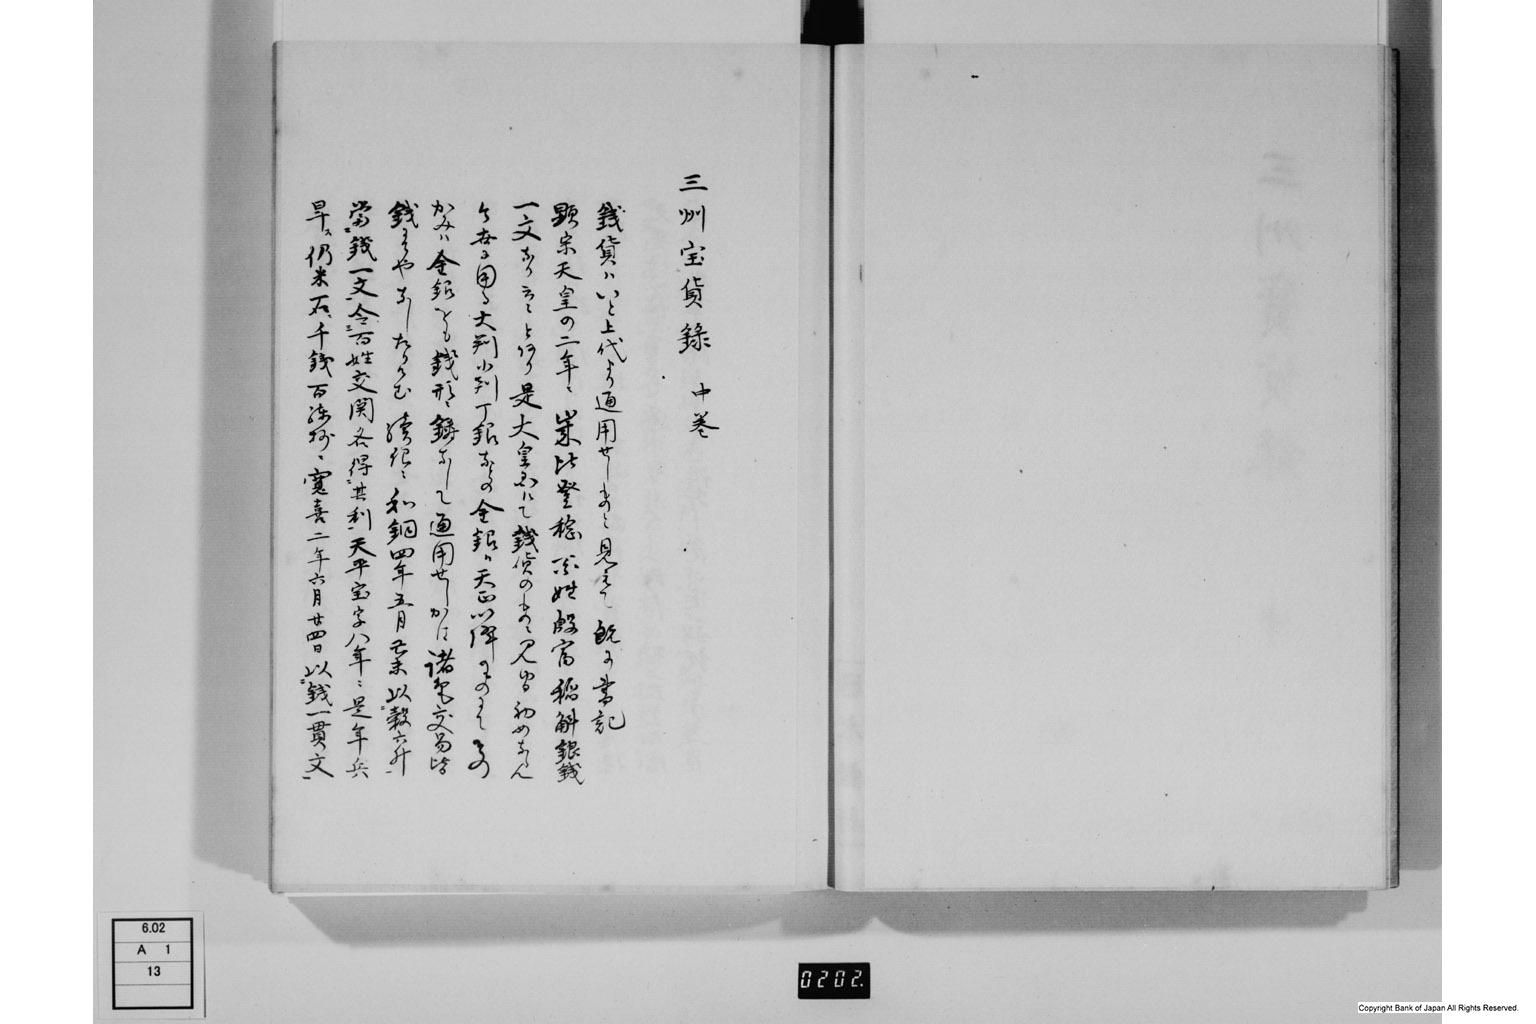 三州宝貨録　中巻
銭貨ハいと上代より通用せしものと見えて既に書記
顕宗天皇の二年ニ歳比登稔百姓殷富稲斛銀銭
一文なりと云々とあり是天皇にて銭貨の見ゆる初めなるへし
今世に用る大判小判丁銀なとの金銀ハ天正以降のものにて
かみハ金銀とも銭形ニ鋳なして通用せしかは諸色交易皆
銭
続紀ニ和銅四年五月己未以穀六升
當銭一文令百姓交関各得其利天平宝字八年ニ是年兵
旱仍米石千銭百練抄ニ寛喜二年六月廿四日以銭一貫文
6.02
A 1
13
0202.
Copyright Bank of Japan All Rights Reserved.